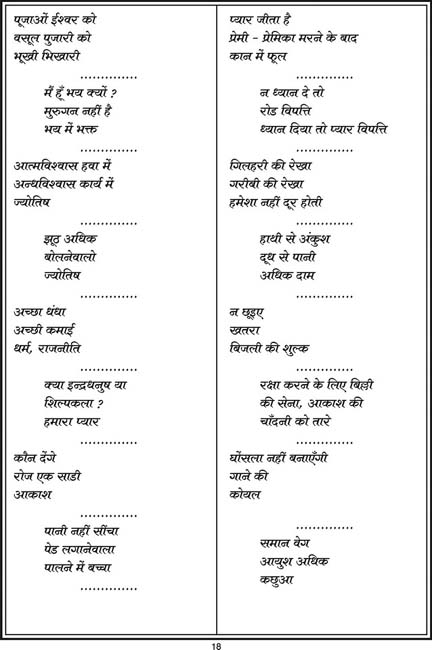 पूजाओं ईश्वर को
वसूल पुजारी को
भूखी भिखारी
..............
मैं हूँ भय क्यों ?
मुरुगन नहीं है
भय में भक्त
..............
आत्मविश्वास हवा में
अन्धविश्वास कार्य में
ज्योतिष
..............
झूठ अधिक
बोलनेवालो
ज्योतिष
..............
अच्छा धंधा
अच्छी कमाई
धर्म, राजनीति
..............
क्या इन्द्रधनुष या
शिल्पकला ?
हमारा प्यार
..............
कौन देंगे
रोज एक साडी
आकाश
..............
पानी नहीं सींचा
पेड लगानेवाला
पालने में बच्चा
..............
प्यार जीता है
प्रेमी - प्रेमिका मरने के बाद
कान में फूल
..............
न ध्यान दे तो
रोड विपत्ति
ध्यान दिया तो प्यार विपत्ति
..............
गिलहरी की रेखा
गरीबी की रेखा
हमेशा नहीं दूर होती
..............
हाथी से अंकुश
दूध से पानी
अधिक दाम
..............
न छूइए
खतरा
बिजली की शुल्क
..............
रक्षा करने के लिए बिल्ली
की सेना, आकाश की
चाँदनी को तारे
..............
घोंसला नहीं बनाएँगी
गाने की
कोयल
..............
समान वेग
आयुश अधिक
कछुआ
18